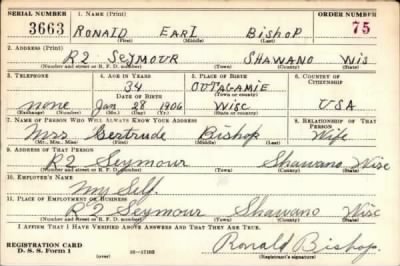 SERIAL NUMBER 1. NAME (Print) ORDER NUMBER
3663 RONALD EARL BISHOP 75
(First) (Middle) (Last)
2. ADDRESS (Print)
R2 SEYMOUR SHAWANO WIS
(Number and street or R. F. D. number) (Town) (County) (State)
3. TELEPHONE 4. AGE IN YEARS 5. PLACE OF BIRTH 6. COUNTRY OF CITIZENSHIP
34 OUTAGAMIE
DATE OF BIRTH (Town or county)
none Jan 28 1906 Wisc USA
(Exchange) (Number) (Mo.) (Day) (Yr.) (State or country)
7. NAME OF PERSON WHO WILL ALWAYS KNOW YOUR ADDRESS 8. RELATIONSHIP OF THAT PERSON
Mrs Gertrude Bishop Wife
(Mr., Mrs., Miss) (First) (Middle) (Last)
9. ADDRESS OF THAT PERSON
R2 Seymour Shawano Wisc
(Number and street or R. F. D. number) (Town) (County) (State)
10. EMPLOYER'S NAME
My Self.
11. PLACE OF EMPLOYMENT OR BUSINESS
R2 Seymour Shawano Wisc
(Number and street or R. F. D. number) (Town) (County) (State)
I AFFIRM THAT I HAVE VERIFIED ABOVE ANSWERS AND THAT THEY ARE TRUE.
REGISTRATION CARD
D. S. S. Form 1 Ronald Bishop.
(Registrant's signature)